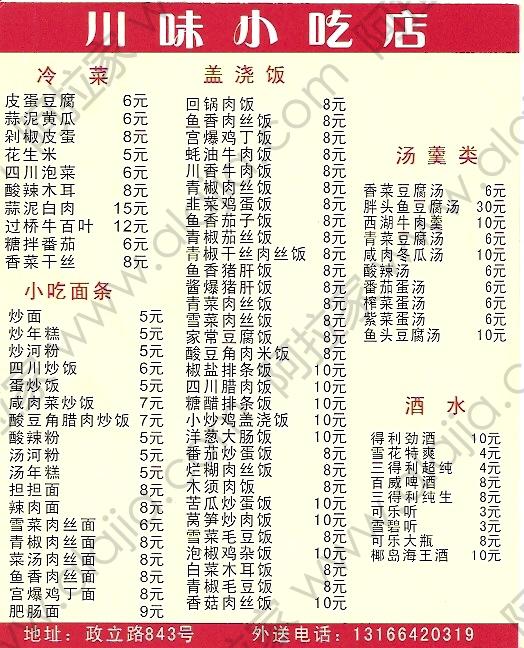 川味小吃店
冷菜
皮蛋豆腐 6元
蒜泥黄瓜 6元
剁椒皮蛋 8元
花生米 5元
四川泡菜 6元
酸辣木耳 8元
蒜泥白肉 15元
过桥牛百叶 12元
糖拌番茄 6元
香菜干丝 8元
小吃面条
炒面 5元
炒年糕 5元
炒河粉 5元
四川炒饭 6元
蛋炒饭 5元
咸肉菜炒饭 7元
酸豆角腊肉炒饭 7元
酸辣粉 5元
汤河粉 5元
汤年糕 5元
担担面 8元
辣肉面 8元
雪菜肉丝面 6元
青椒肉丝面 8元
菜汤肉丝面 8元
鱼香肉丝面 8元
宫爆鸡丁面 8元
肥肠面 9元
盖浇饭
回锅肉饭 8元
鱼香肉丝饭 8元
宫爆鸡丁饭 8元
蚝油牛肉饭 8元
川香牛肉饭 8元
青椒肉丝饭 8元
韭菜鸡蛋饭 8元
鱼香茄子饭 8元
青椒茄丝饭 8元
青椒干丝肉丝饭 8元
鱼香猪肝饭 8元
酱爆猪肝饭 8元
青菜肉丝饭 8元
雪菜肉丝饭 8元
家常豆腐饭 8元
酸豆角肉米饭 8元
椒盐排条饭 10元
四川腊肉饭 10元
糖醋排条饭 10元
小炒鸡盖浇饭 10元
洋葱大肠饭 10元
番茄炒蛋饭 8元
烂糊肉丝饭 8元
木须肉饭 8元
苦瓜炒蛋饭 10元
莴笋炒肉饭 10元
雪菜毛豆饭 8元
泡椒鸡杂饭 10元
白菜木耳饭 8元
青椒毛豆饭 8元
香菇肉丝饭 10元
汤羹类
香菜豆腐汤 6元
胖头鱼豆腐汤 30元
西湖牛肉羹 10元
青菜豆腐汤 6元
咸肉冬瓜汤 10元
酸辣汤 6元
番茄蛋汤 6元
榨菜蛋汤 6元
紫菜蛋汤 6元
鱼头豆腐汤 10元
酒水
得利劲酒 10元
雪花特爽 4元
三得利超纯 4元
百威啤酒 8元
三得利纯生 8元
可乐听 3元
雪碧听 3元
可乐大瓶 8元
椰岛海王酒 10元
地址：政立路843号 外送电话：13166420319